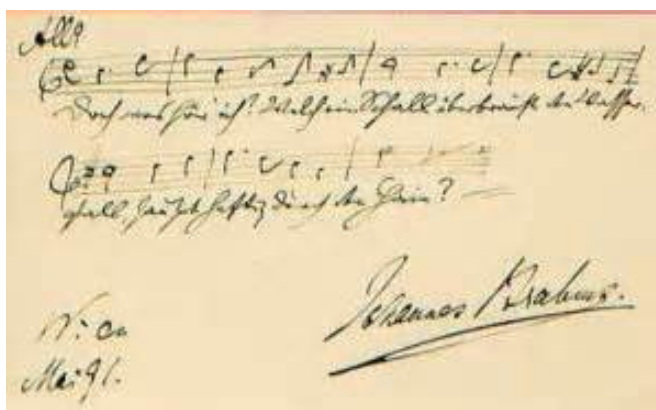 Allo
Doch was hör ich? Welch ein Schall überbraust den Wasser-
fall, sauset heftig durch den Hain?
Johannes Brahms.
Wien
Mai 91.